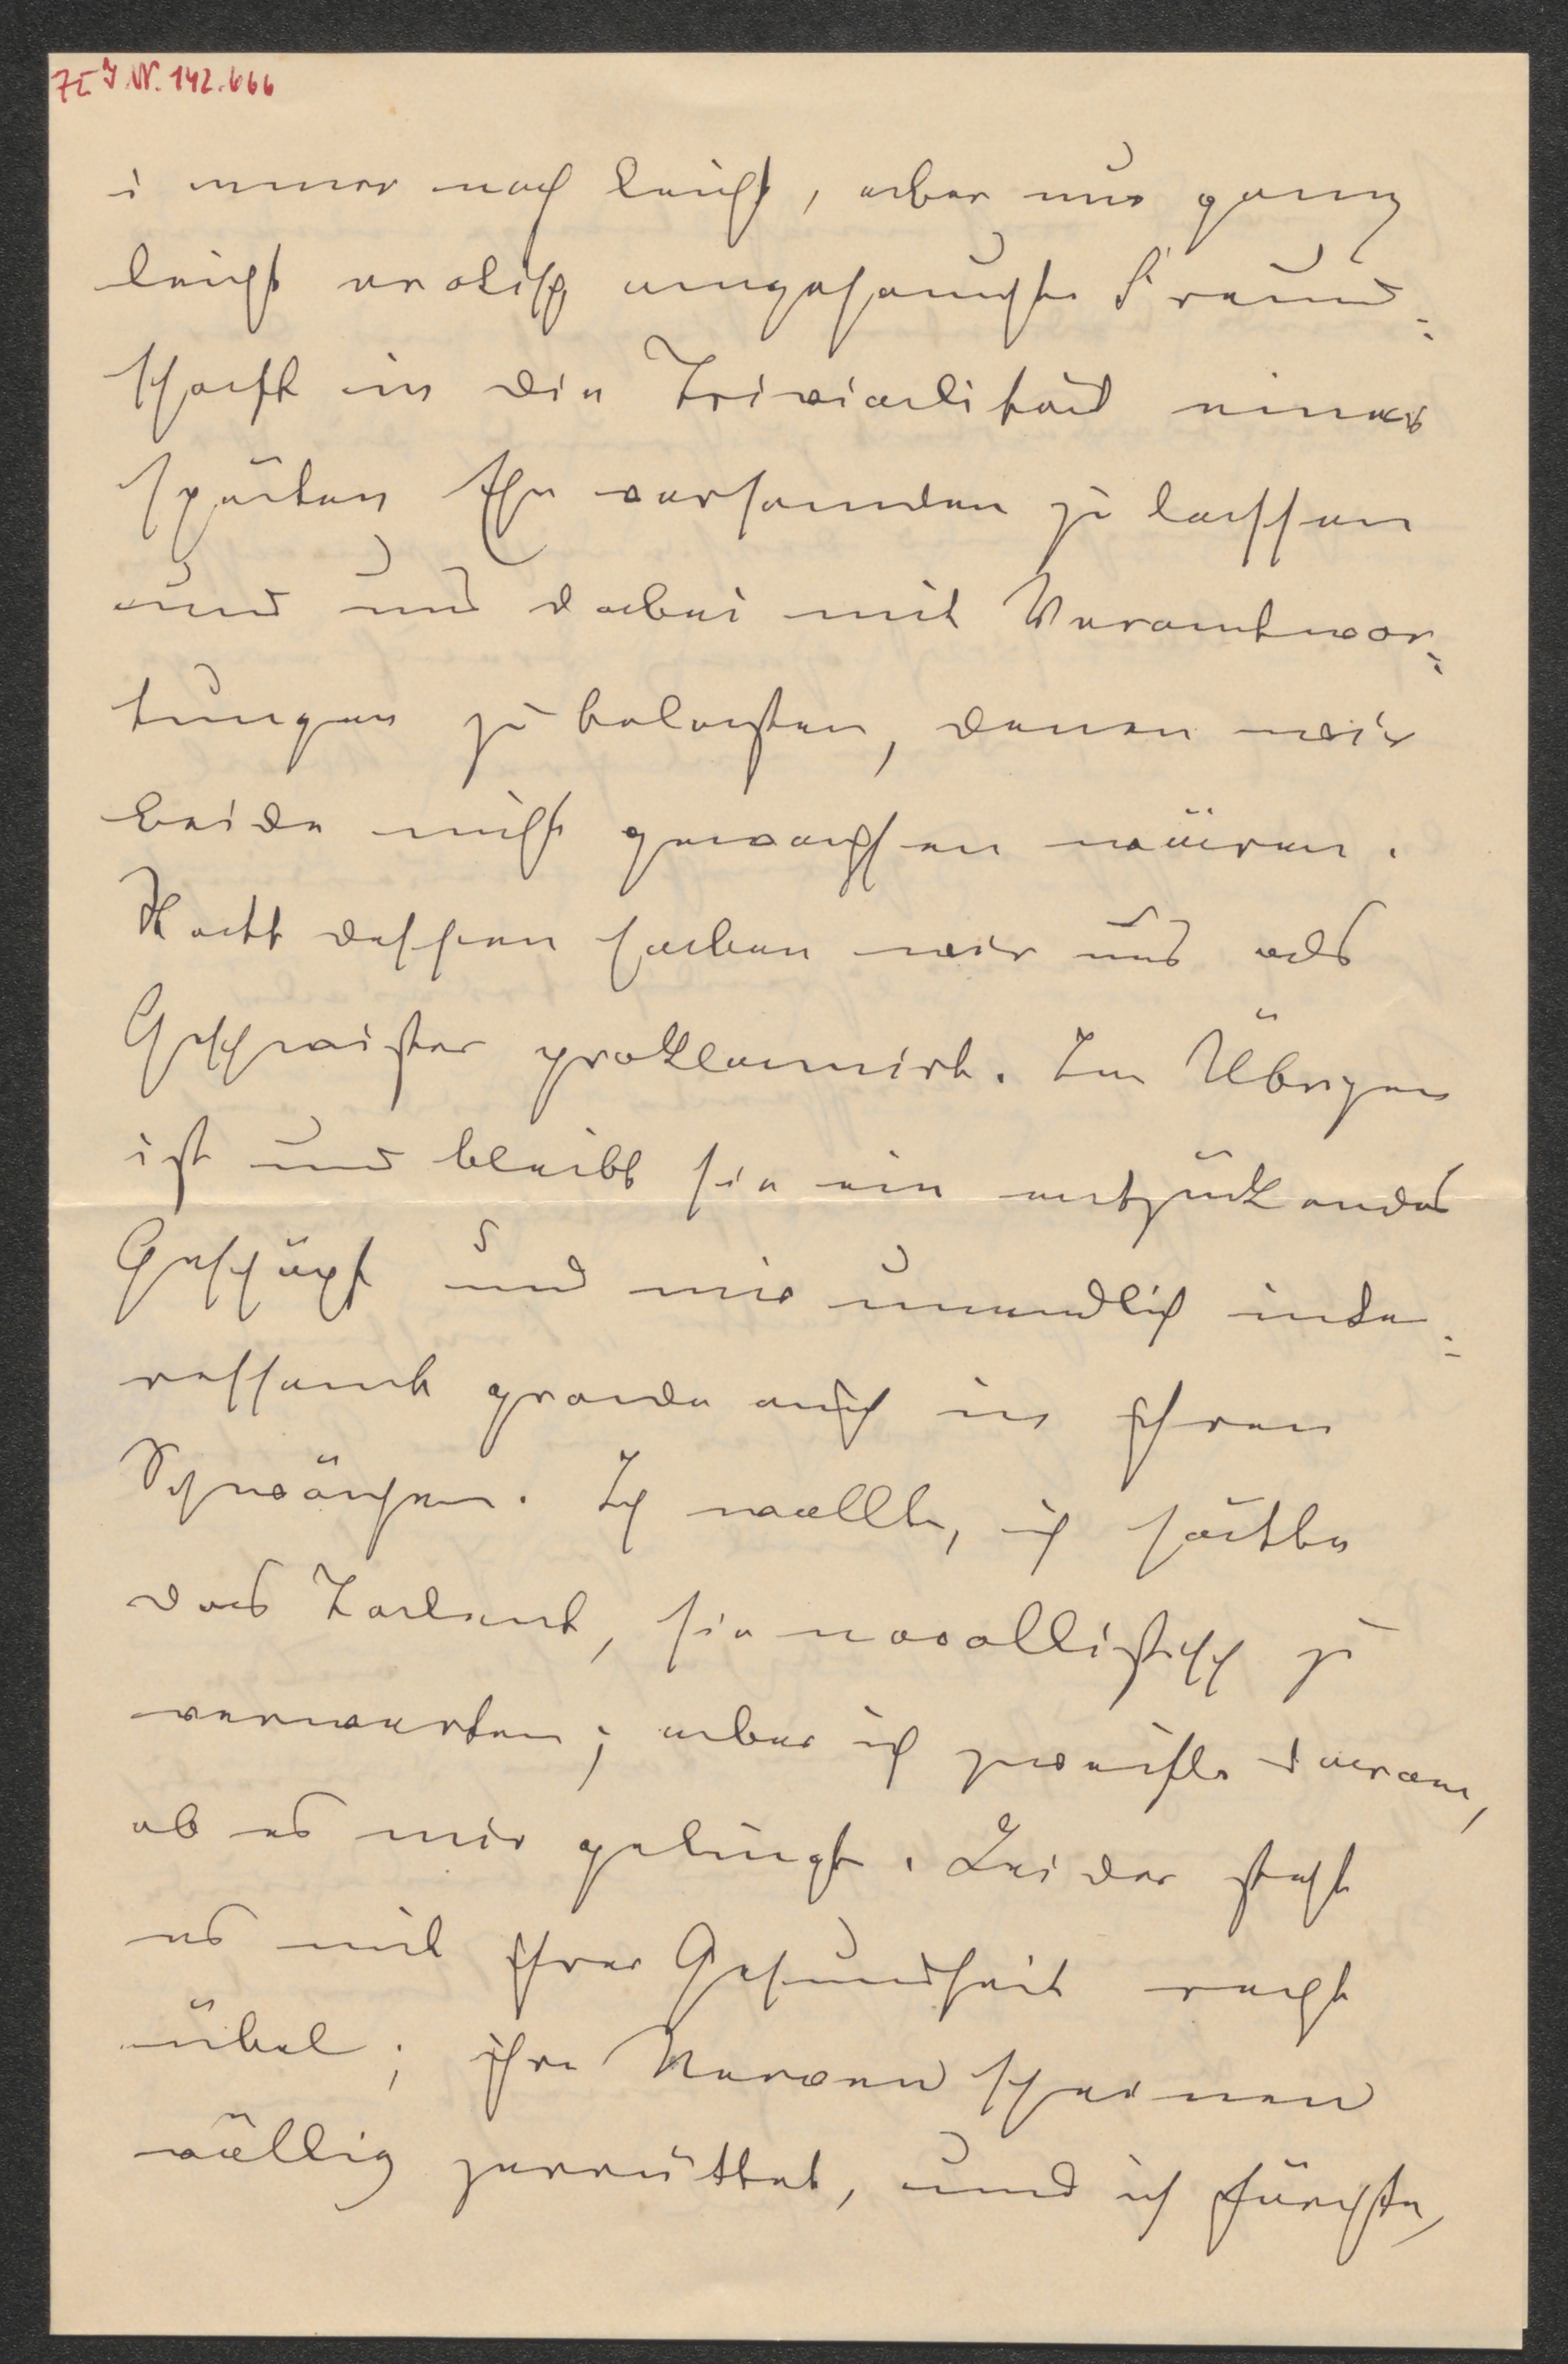 ZE I.N. 142.666
immer noch leicht, aber nur ganz
leicht erotisch angehauchte Freund=
schaft in die Trivialität einer
späten Ehe versanden zu lassen
und uns dabei mit Verantwor=
tungen zu belasten, denen wir
beide nicht gewachsen wären.
Statt dessen haben wir uns als
Geschwister proklamirt. Im Übrigen
ist und bleibt sie ein entzückendes
Geschöpf und mir unendlich inte=
ressant grade auch in ihren
Schwächen. Ich wollte, ich hätte
das Talent, sie novellistisch zu
verwerten; aber ich zweifle daran,
ob es mir gelingt. Leider steht
es mit ihrer Gesundheit recht
übel; ihre Nerven scheinen
völlig zerrüttet, und ich fürchte,